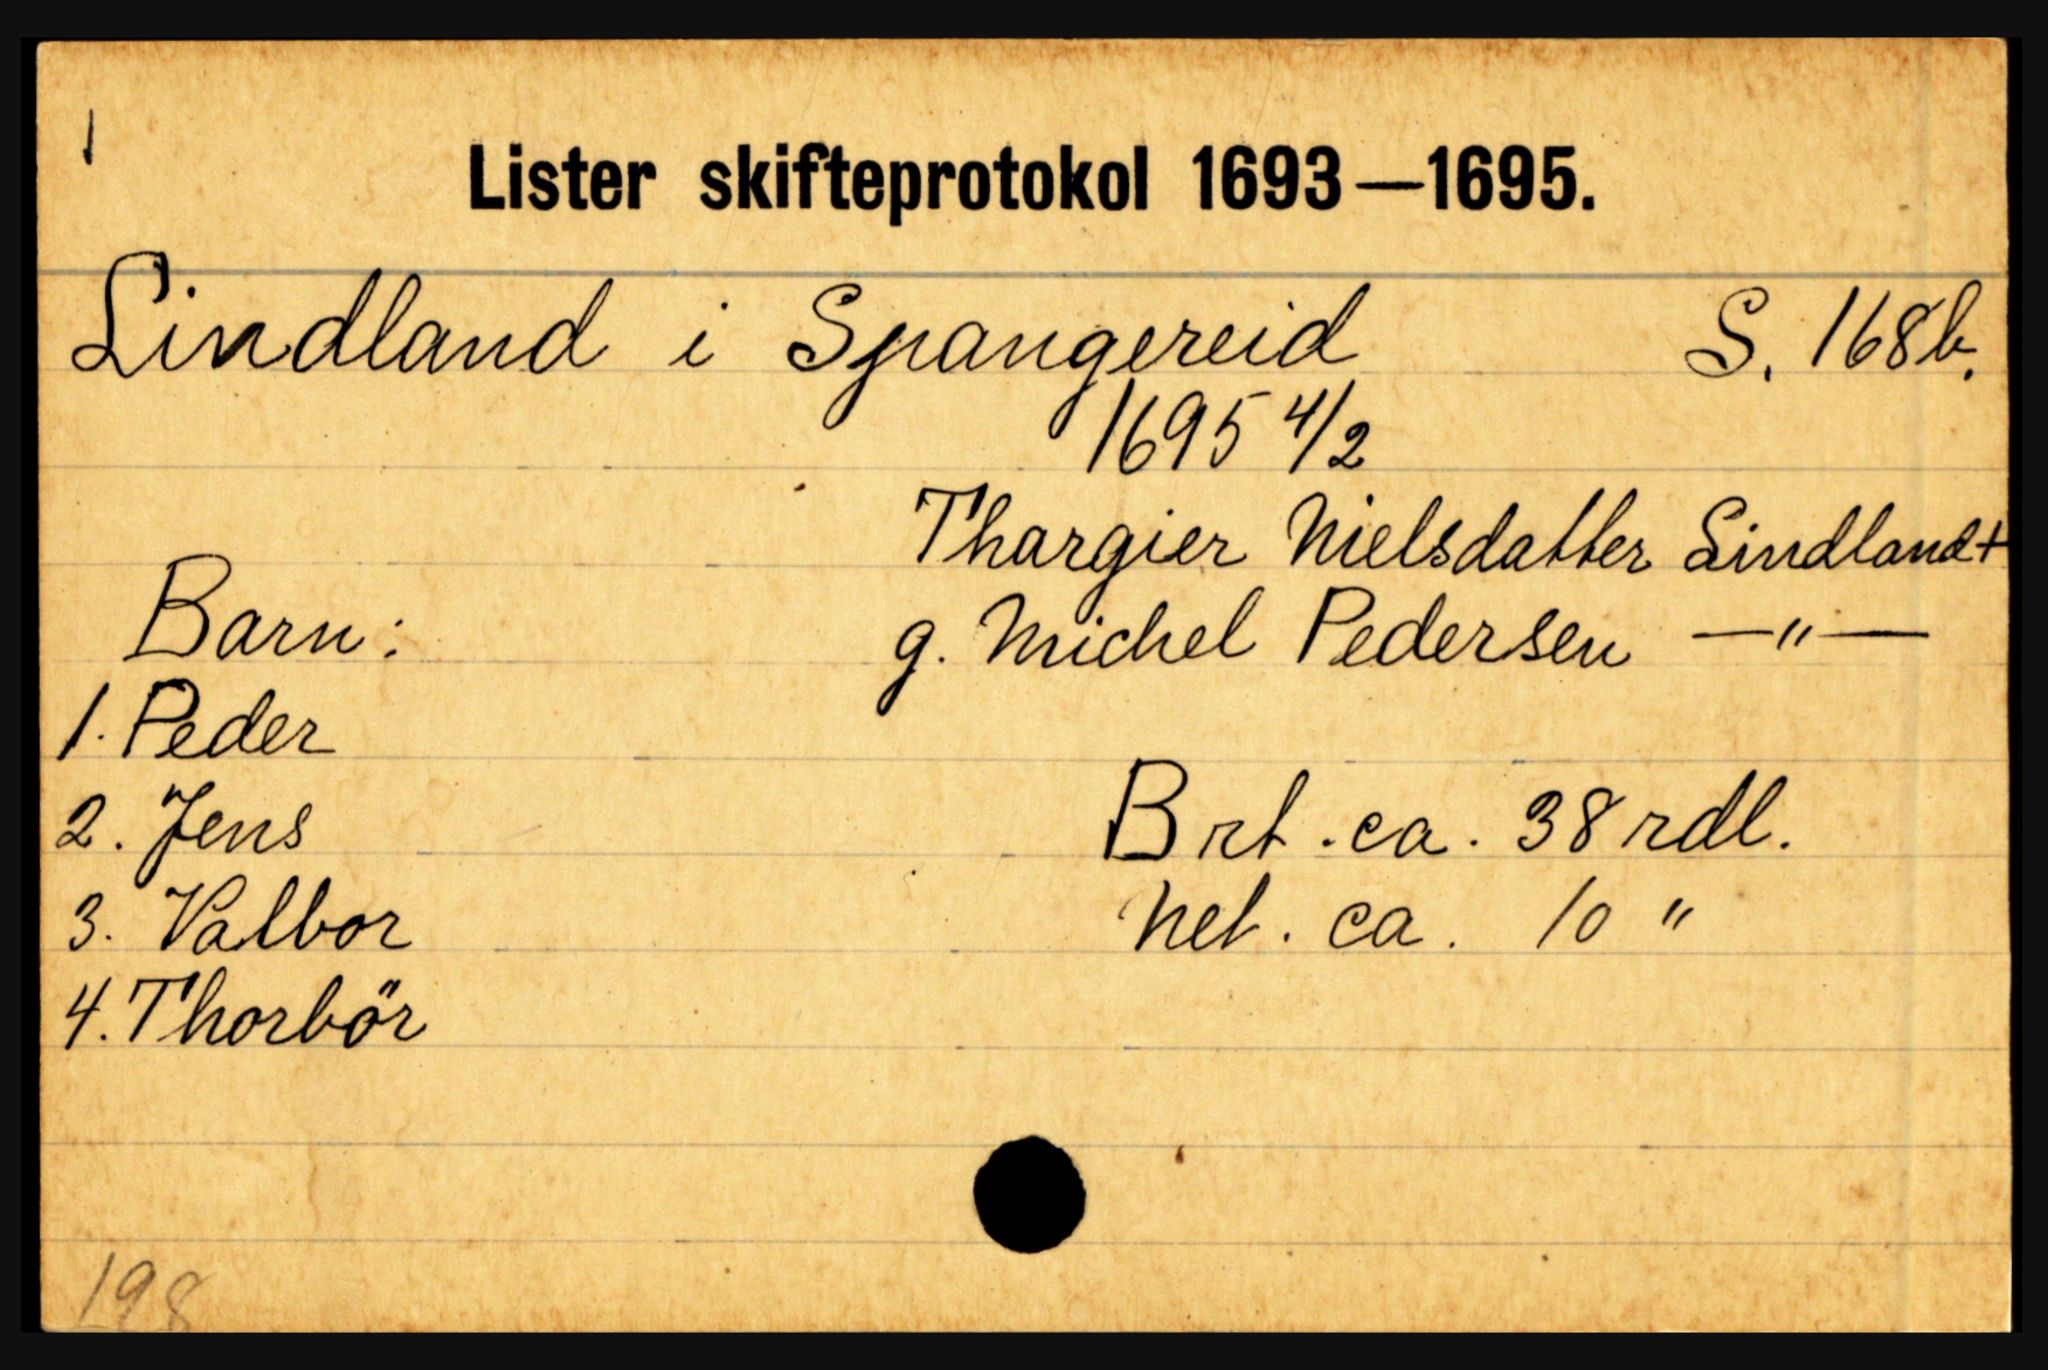 1
Lister skifteprotokol 1693—1695.
Lindland i Spangereid S. 168b.
1695 4/2
Thargier Nielsdatter Lindland +
g. Michel Pedersen —"—
Barn:
1. Peder
2. Jens
3. Valbor
4. Thorbör
Brt. ca. 38 rdl.
Net. ca. 10 "
198